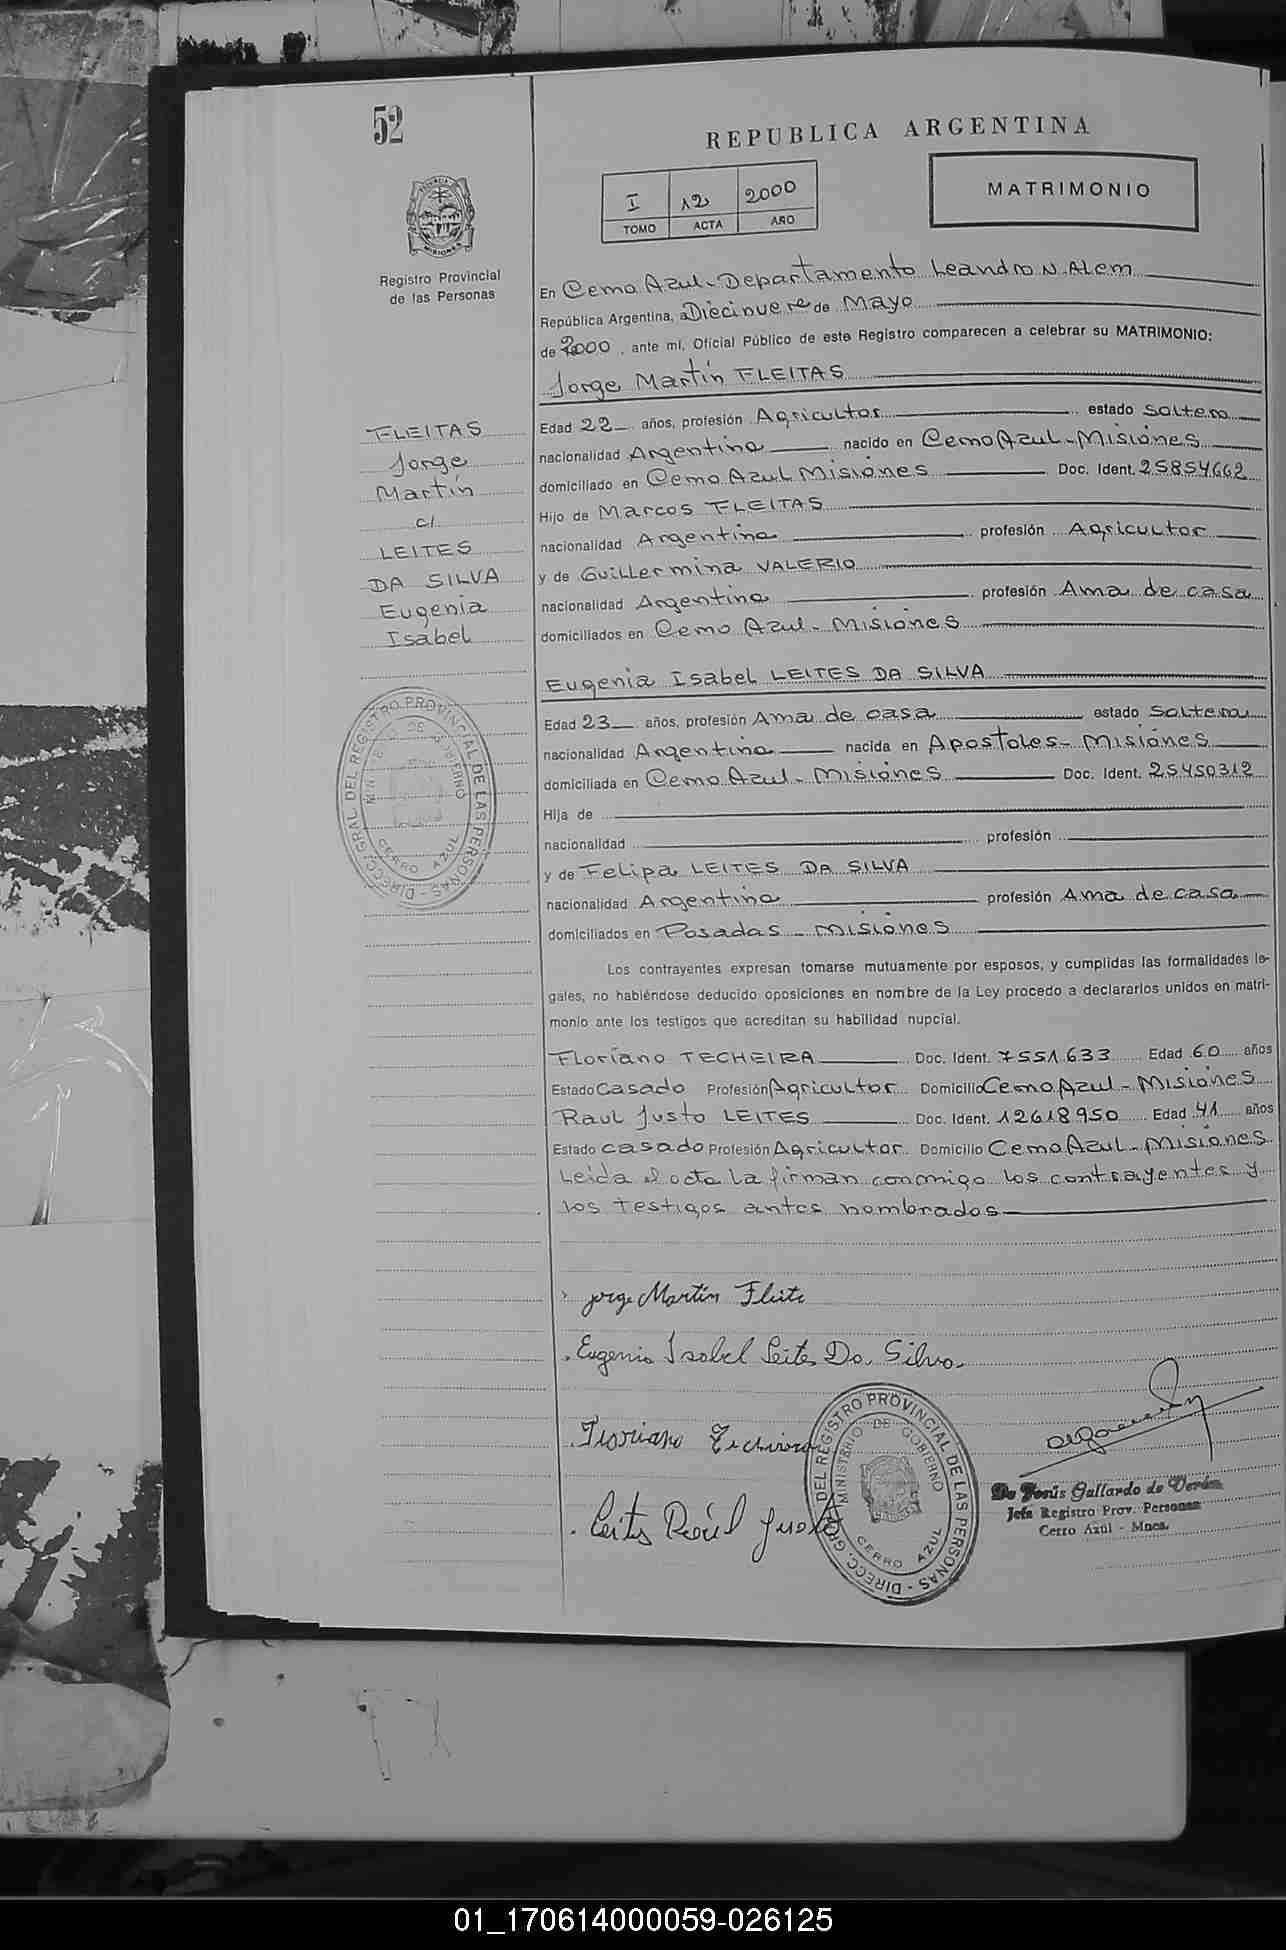 52
REPUBLICA ARGENTINA
I 12 2000
TOMO ACTA AÑO
MATRIMONIO
Registro Provincial
de las Personas
En Cerro Azul - Departamento Leandro N. Alem
República Argentina, a Diecinueve de Mayo
de 2000, ante mí, Oficial Público de este Registro comparecen a celebrar su MATRIMONIO:
Jorge Martín FLEITAS
FLEITAS
Jorge
Martín
c/
LEITES
DA SILVA
Eugenia
Isabel
Edad 22 años, profesión Agricultor estado Soltero
nacionalidad Argentina nacido en Cerro Azul - Misiones
domiciliado en Cerro Azul Misiones Doc. Ident. 25854662
Hijo de Marcos FLEITAS
nacionalidad Argentina profesión Agricultor
y de Guillermina VALERIO
nacionalidad Argentina profesión Ama de casa
domiciliados en Cerro Azul - Misiones
Eugenia Isabel LEITES DA SILVA
Edad 23 años, profesión Ama de casa estado Soltera
nacionalidad Argentina nacida en Apostoles - Misiones
domiciliada en Cerro Azul - Misiones Doc. Ident. 25450312
Hija de
nacionalidad profesión
y de Felipa LEITES DA SILVA
nacionalidad Argentina profesión Ama de casa
domiciliados en Posadas - Misiones
DIRECC. GRAL DEL REGISTRO PROVINCIAL DE LAS PERSONAS
CERRO AZUL
Los contrayentes expresan tomarse mutuamente por esposos, y cumplidas las formalidades le-
gales, no habiéndose deducido oposiciones en nombre de la Ley procedo a declararlos unidos en matri-
monio ante los testigos que acreditan su habilidad nupcial.
Floriano TECHEIRA Doc. Ident. 7551633 Edad 60 años
Estado Casado Profesión Agricultor Domicilio Cerro Azul - Misiones
Raul Justo LEITES Doc. Ident. 12618950 Edad 41 años
Estado casado Profesión Agricultor Domicilio Cerro Azul - Misiones
Leida el acta la firman conmigo los contrayentes y
los testigos antes nombrados
Jorge Martín Fleita
Eugenia Isabel Leites Da Silva
Floriano Techeira
Leites Raúl Justo
DIRECC. GRAL DEL REGISTRO PROVINCIAL DE LAS PERSONAS
MINISTERIO DE GOBIERNO
CERRO AZUL
De Jesús Gallardo de Verón
Jefa Registro Prov. Personas
Cerro Azul - Mnes.
01_170614000059-026125